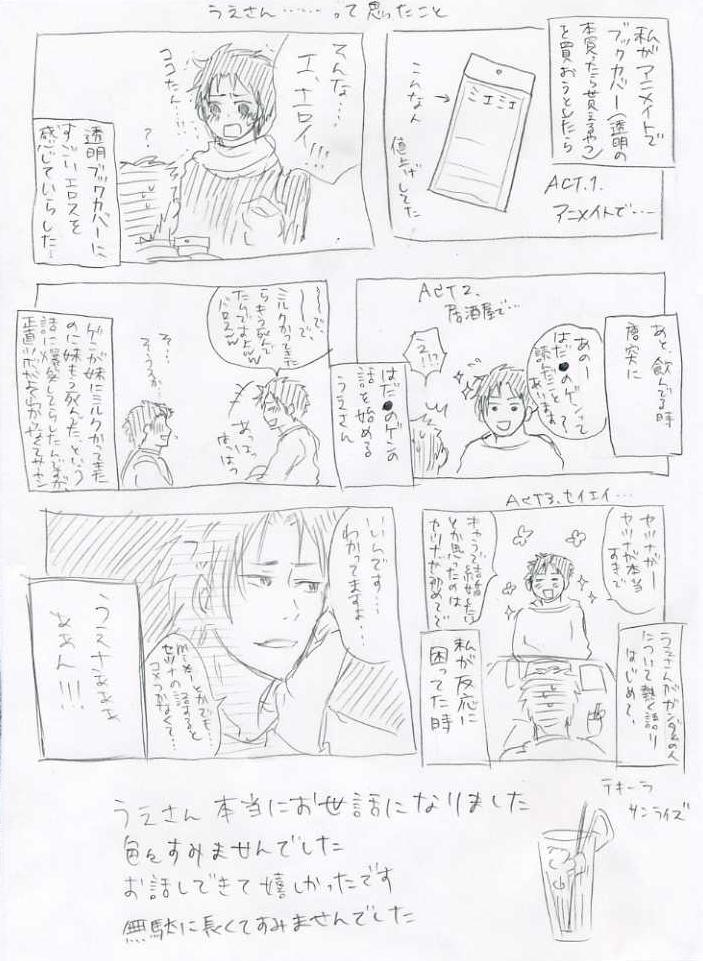 うえさん……って思ったこと
私がアニメイトで
ブックカバー(透明の
本買ったら貰えるやつ)
を買おうとしたら
ACT.1.
アニメイトで…
ミエミエ
こんなん
値上げしてた
そんな…
エ、エロイ!!!
ココたん…!!
?
透明ブックカバーに
すごいエロスを
感じていらした…
あと、飲んでる時
唐突に
ACT2.
居酒屋で…
あのー
はだ●のゲンって
読んだこと
あります?
え!?
はだ●のゲンの
話を始める
うえさん
〜〜で、
〜〜で、
ミルクかってきた
らもう死んで
たんですよwww
あっはっ
はっはっ
そ…
そうっすか…
ゲンが妹にミルクかってきた
のに妹もう死んでた、という
話に爆笑してらしたんですが
ACT3.セイエイ…
セツナがー
セツナが本当
すきで
キャラで結婚したい
とか思ったのは
セツナが初めてで
うえさんがガンダムの人
について熱く語り
はじめて、
私が反応に
困ってた時
いいんです…
わかってますよ…
mixiとかでも…
セツナの話すると
コメつかなくて…
うえサあああ
ああん!!!
うえさん本当にお世話になりました
色々すみませんでした
お話しできて嬉しかったです
無駄に長くてすみませんでした
テキーラ
サンライズ